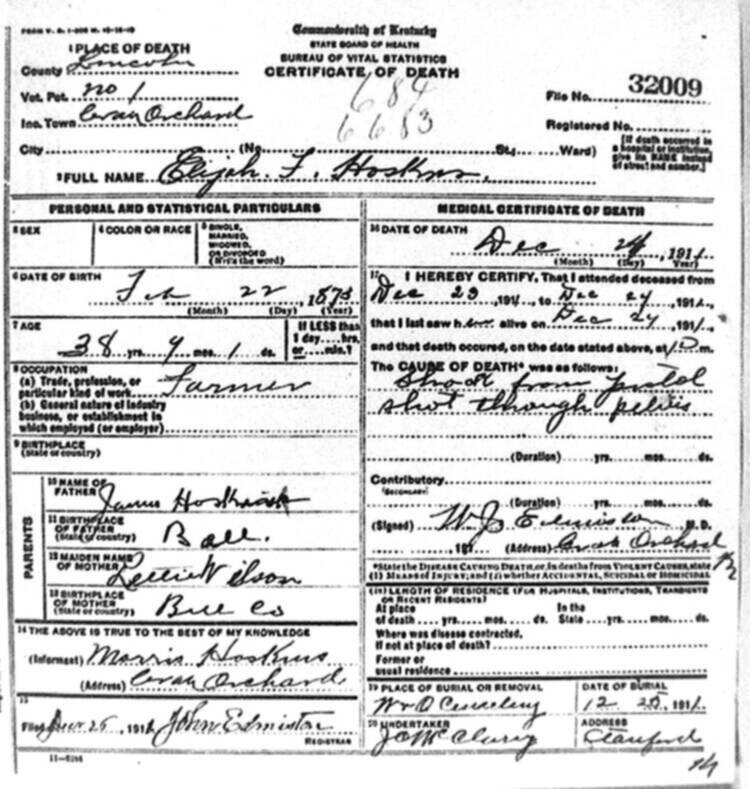 FORM V. S. 1-
Commonwealth of Kentucky
STATE BOARD OF HEALTH
BUREAU OF VITAL STATISTICS
CERTIFICATE OF DEATH
1 PLACE OF DEATH
County Lincoln
Vot. Pct. no 1
Inc. Town Crab Orchard
City (No. St.; Ward)
684
6683
File No. 32009
Registered No.
[If death occurred in
a hospital or institution,
give its NAME instead
of street and number.]
2 FULL NAME Elijah. F. Hoskins.
PERSONAL AND STATISTICAL PARTICULARS
3 SEX
4 COLOR OR RACE
5 SINGLE,
MARRIED,
WIDOWED,
OR DIVORCED
(Write the word)
6 DATE OF BIRTH
Feb 22, 1873
(Month) (Day) (Year)
7 AGE
38 yrs. 9 mos. 1 ds.
If LESS than
1 day....hrs.
or....min.?
8 OCCUPATION
(a) Trade, profession, or
particular kind of work Farmer
(b) General nature of industry
business, or establishment in
which employed (or employer)
9 BIRTHPLACE
(State or country)
PARENTS
10 NAME OF
FATHER James Hoskins
11 BIRTHPLACE
OF FATHER
(State or country) Ball.
12 MAIDEN NAME
OF MOTHER Wilson
13 BIRTHPLACE
OF MOTHER
(State or country) Bell Co
14 THE ABOVE IS TRUE TO THE BEST OF MY KNOWLEDGE
(Informant) Morris Hoskins
(Address) Crab Orchard
15
Filed 25, 1911 John Edmiston
REGISTRAR
MEDICAL CERTIFICATE OF DEATH
16 DATE OF DEATH
Dec 24, 1911
(Month) (Day) (Year)
17 I HEREBY CERTIFY, That I attended deceased from
Dec 23, 1911, to Dec 24, 1911,
that I last saw h alive on Dec 24, 1911,
and that death occured, on the date stated above, at m.
The CAUSE OF DEATH* was as follows:
Shock from pistol
shot through pelvis
(Duration) yrs. mos. ds.
Contributory
(SECONDARY)
(Duration) yrs. mos. ds.
(Signed) W. J. Edmiston M. D.
191 (Address) Crab Orchard
*State the DISEASE CAUSING DEATH, or, in deaths from VIOLENT CAUSES, state
(1) MEANS OF INJURY; and (2) whether ACCIDENTAL, SUICIDAL OR HOMICIDAL
18 LENGTH OF RESIDENCE (FOR HOSPITALS, INSTITUTIONS, TRANSIENTS
OR RECENT RESIDENTS)
At place of death yrs. mos. ds.
In the State yrs. mos. ds.
Where was disease contracted,
if not at place of death?
Former or
usual residence
19 PLACE OF BURIAL OR REMOVAL
DATE OF BURIAL
12 25, 1911
20 UNDERTAKER
J C McClary
ADDRESS
Stanford